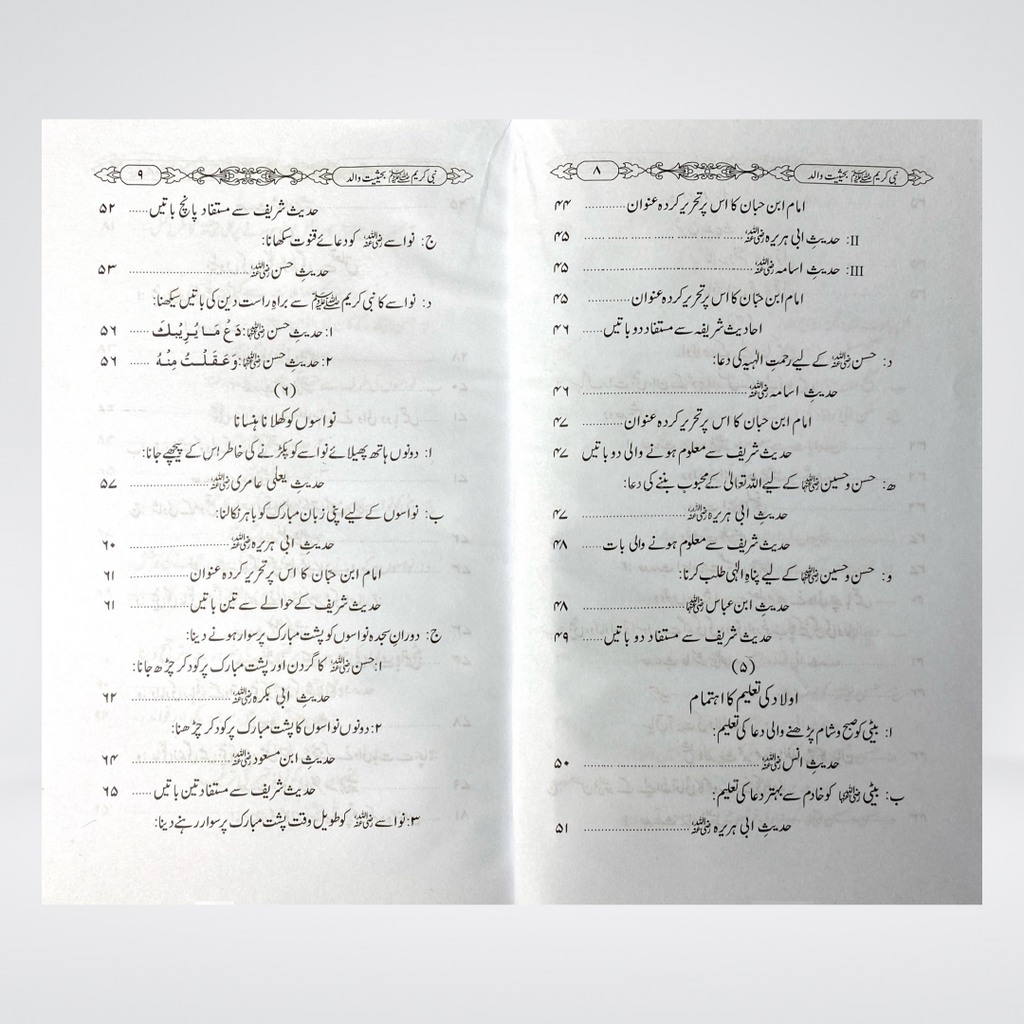 نبی کریم ﷺ بحیثیت والد ۸
امام ابن حبان کا اس پر تحریر کردہ عنوان ........... ۴۴
II: حدیثِ ابی ہریرہ رضی اللہ عنہ ........................ ۴۵
III: حدیثِ اسامہ رضی اللہ عنہ ........................ ۴۵
امام ابن حبّان کا اس پر تحریر کردہ عنوان ........... ۴۵
احادیث شریفہ سے مستفاد دو باتیں ................ ۴۶
د: حسن رضی اللہ عنہ کے لیے رحمتِ الٰہیہ کی دعا:
حدیث اسامہ رضی اللہ عنہ ........................ ۴۶
امام ابن حبان کا اس پر تحریر کردہ عنوان ........... ۴۷
حدیث شریف سے معلوم ہونے والی دو باتیں ۴۷
ھ: حسن و حسین رضی اللہ عنہما کے لیے اللہ تعالیٰ کے محبوب بننے کی دعا:
حدیثِ ابی ہریرہ رضی اللہ عنہ ................... ۴۷
حدیث شریف سے معلوم ہونے والی بات ...... ۴۸
و: حسن و حسین رضی اللہ عنہما کے لیے پناہِ الٰہی طلب کرنا:
حدیثِ ابن عباس رضی اللہ عنہما ................... ۴۸
حدیث شریف سے مستفاد دو باتیں ...... ۴۹
(۵)
اولاد کی تعلیم کا اہتمام
ا: بیٹی کو صبح و شام پڑھنے والی دعا کی تعلیم:
حدیثِ انس رضی اللہ عنہ ........................ ۵۰
ب: بیٹی رضی اللہ عنہا کو خادم سے بہتر دعا کی تعلیم:
حدیثِ ابی ہریرہ رضی اللہ عنہ ................... ۵۱
نبی کریم ﷺ بحیثیت والد ۹
حدیث شریف سے مستفاد پانچ باتیں ...... ۵۲
ج: نواسے رضی اللہ عنہ کو دعائے قنوت سکھانا:
حدیثِ حسن رضی اللہ عنہ ........................ ۵۳
د: نواسے کا نبی کریم ﷺ سے براہِ راست دین کی باتیں سیکھنا:
۱: حدیثِ حسن رضی اللہ عنہ: دَعْ مَا يُرِيْبُكَ ...... ۵۶
۲: حدیثِ حسن رضی اللہ عنہ: وَعَقَلْتُ مِنْهُ ...... ۵۶
(۶)
نواسوں کو کھلانا ہنسانا
ا: دونوں ہاتھ پھیلائے نواسے کو پکڑنے کی خاطر اس کے پیچھے جانا:
حدیثِ یعلی عامری رضی اللہ عنہ ................... ۵۷
ب: نواسوں کے لیے اپنی زبان مبارک کو باہر نکالنا:
حدیثِ ابی ہریرہ رضی اللہ عنہ ................... ۶۰
امام ابن حبّان کا اس پر تحریر کردہ عنوان ........... ۶۱
حدیث شریف کے حوالے سے تین باتیں ........... ۶۱
ج: دورانِ سجدہ نواسوں کو پشت مبارک پر سوار ہونے دینا:
۱: حسن رضی اللہ عنہ کا گردن اور پشت مبارک پر کود کر چڑھ جانا:
حدیثِ ابی بکرہ رضی اللہ عنہ ................... ۶۲
۲: دونوں نواسوں کا پشت مبارک پر کود کر چڑھنا:
حدیثِ ابن مسعود رضی اللہ عنہ ................... ۶۴
حدیث شریف سے مستفاد تین باتیں ...... ۶۵
۳: نواسے رضی اللہ عنہ کو طویل وقت پشت مبارک پر سوار رہنے دینا: